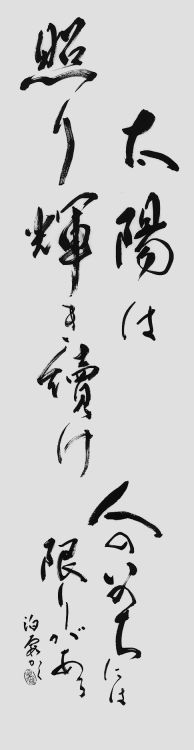 太陽は
照り輝き續け
人のいのちには
限りがある